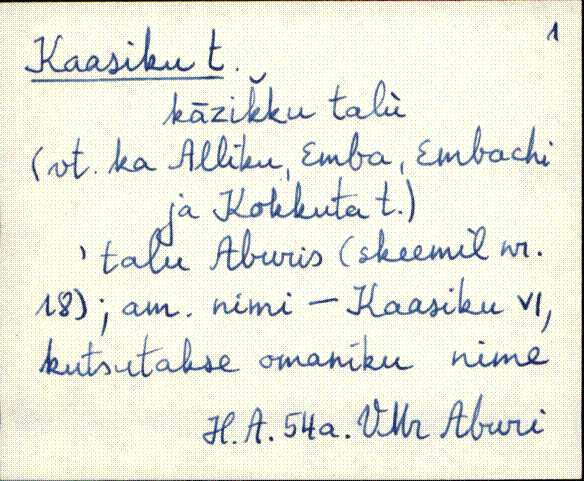 1
Kaasiku t.
kāzik̆ku talù
(vt. ka Alliku, Emba, Embachi
ja Kokkuta t.)
' talu Aburis (skeemil nr.
18); am. nimi – Kaasiku VI,
kutsutakse omaniku nime
H.A. 54a. VMr Aburi